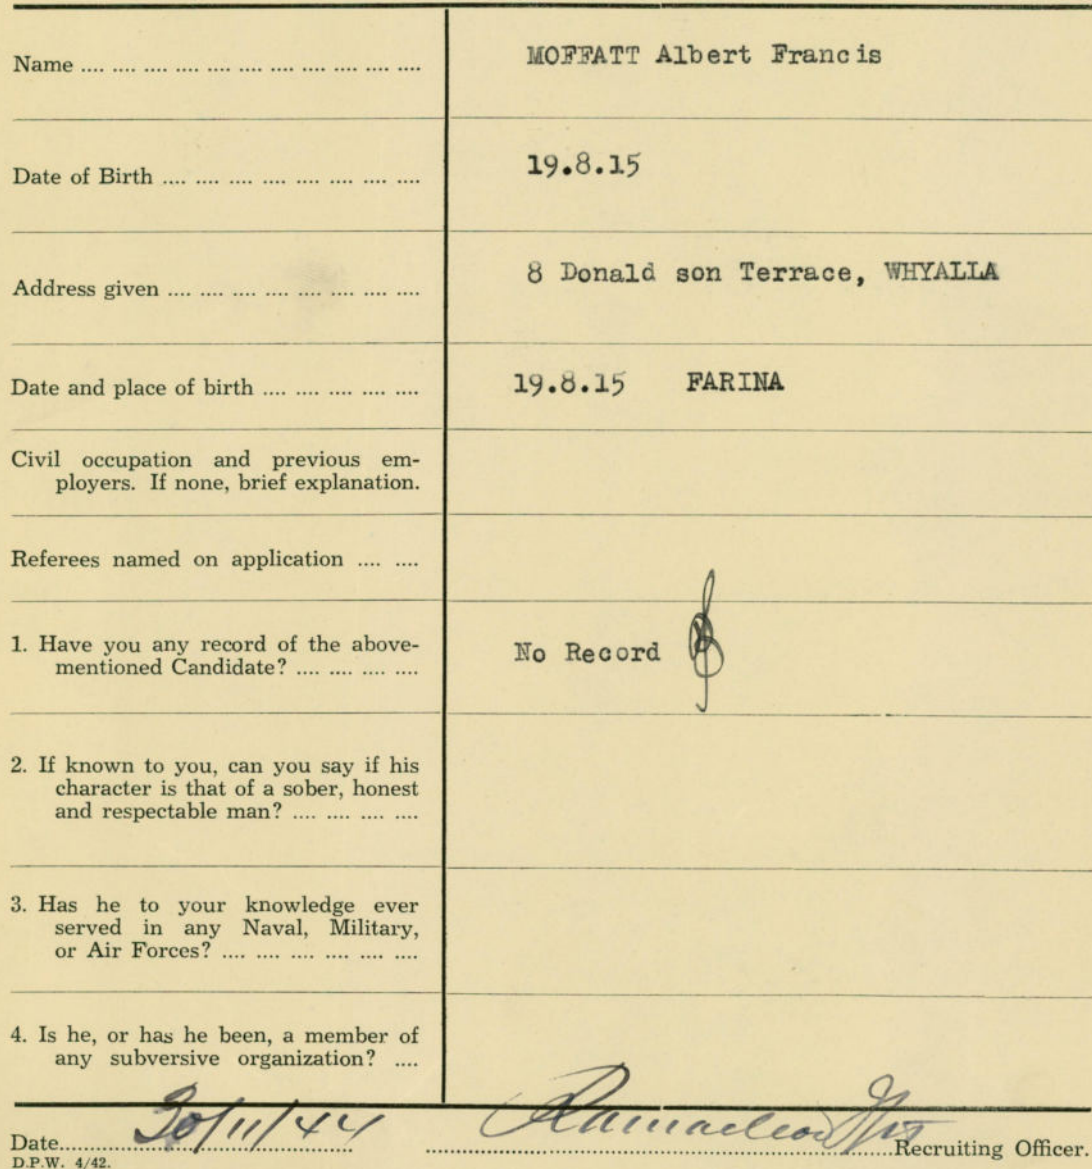 Name .... .... .... .... .... .... .... .... .... .... .... MOFFATT Albert Francis
Date of Birth .... .... .... .... .... .... .... .... 19.8.15
Address given .... .... .... .... .... .... .... .... 8 Donald son Terrace, WHYALLA
Date and place of birth .... .... .... .... .... 19.8.15 FARINA
Civil occupation and previous em-
ployers. If none, brief explanation.
Referees named on application .... ....
1. Have you any record of the above-
mentioned Candidate? .... .... .... .... No Record
2. If known to you, can you say if his
character is that of a sober, honest
and respectable man? .... .... .... ....
3. Has he to your knowledge ever
served in any Naval, Military,
or Air Forces? .... .... .... .... .... ....
4. Is he, or has he been, a member of
any subversive organization? ....
Date 30/11/44 Recruiting Officer.
D.P.W. 4/42.